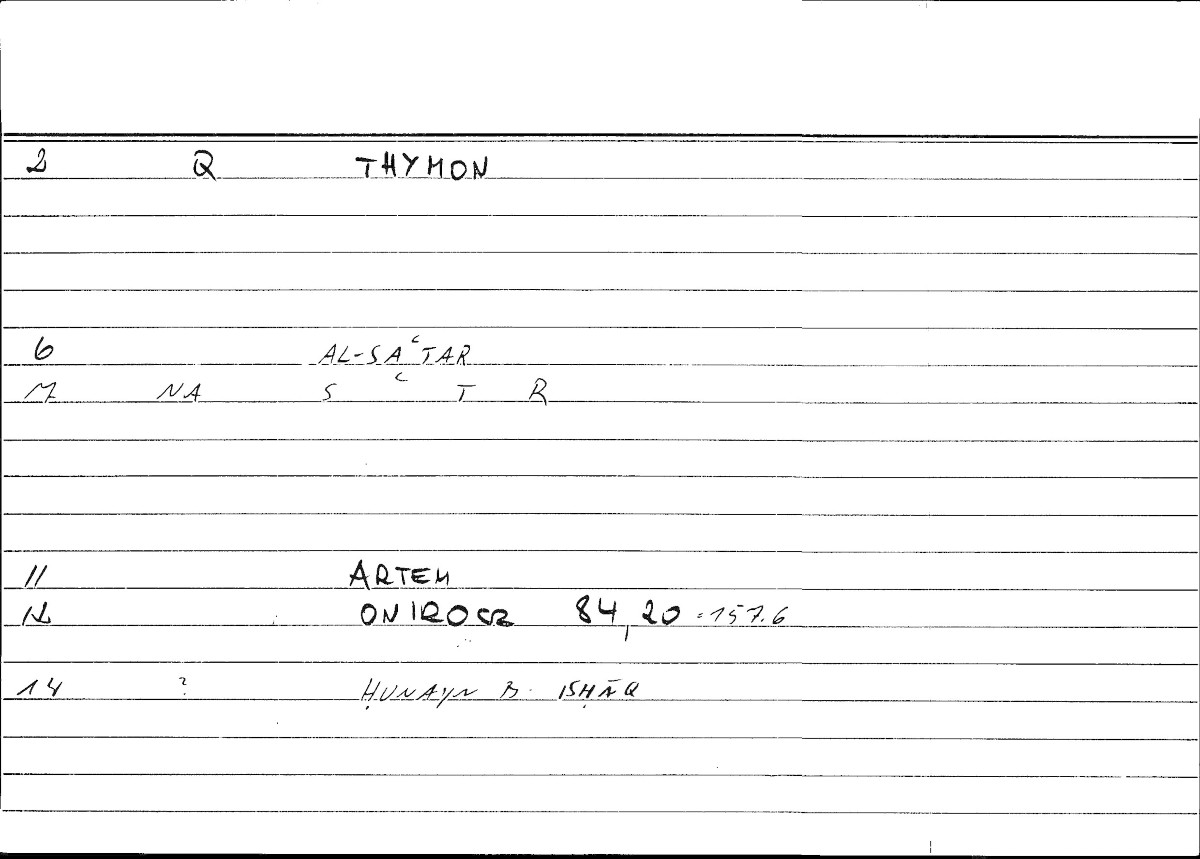 2 Q THYMON
6 AL-SAʿTAR
M NA S ʿ T R
11 ARTEM
12 ONIROCR 84,20 = 157.6
14 ? ḤUNAYN B. ISḤĀQ